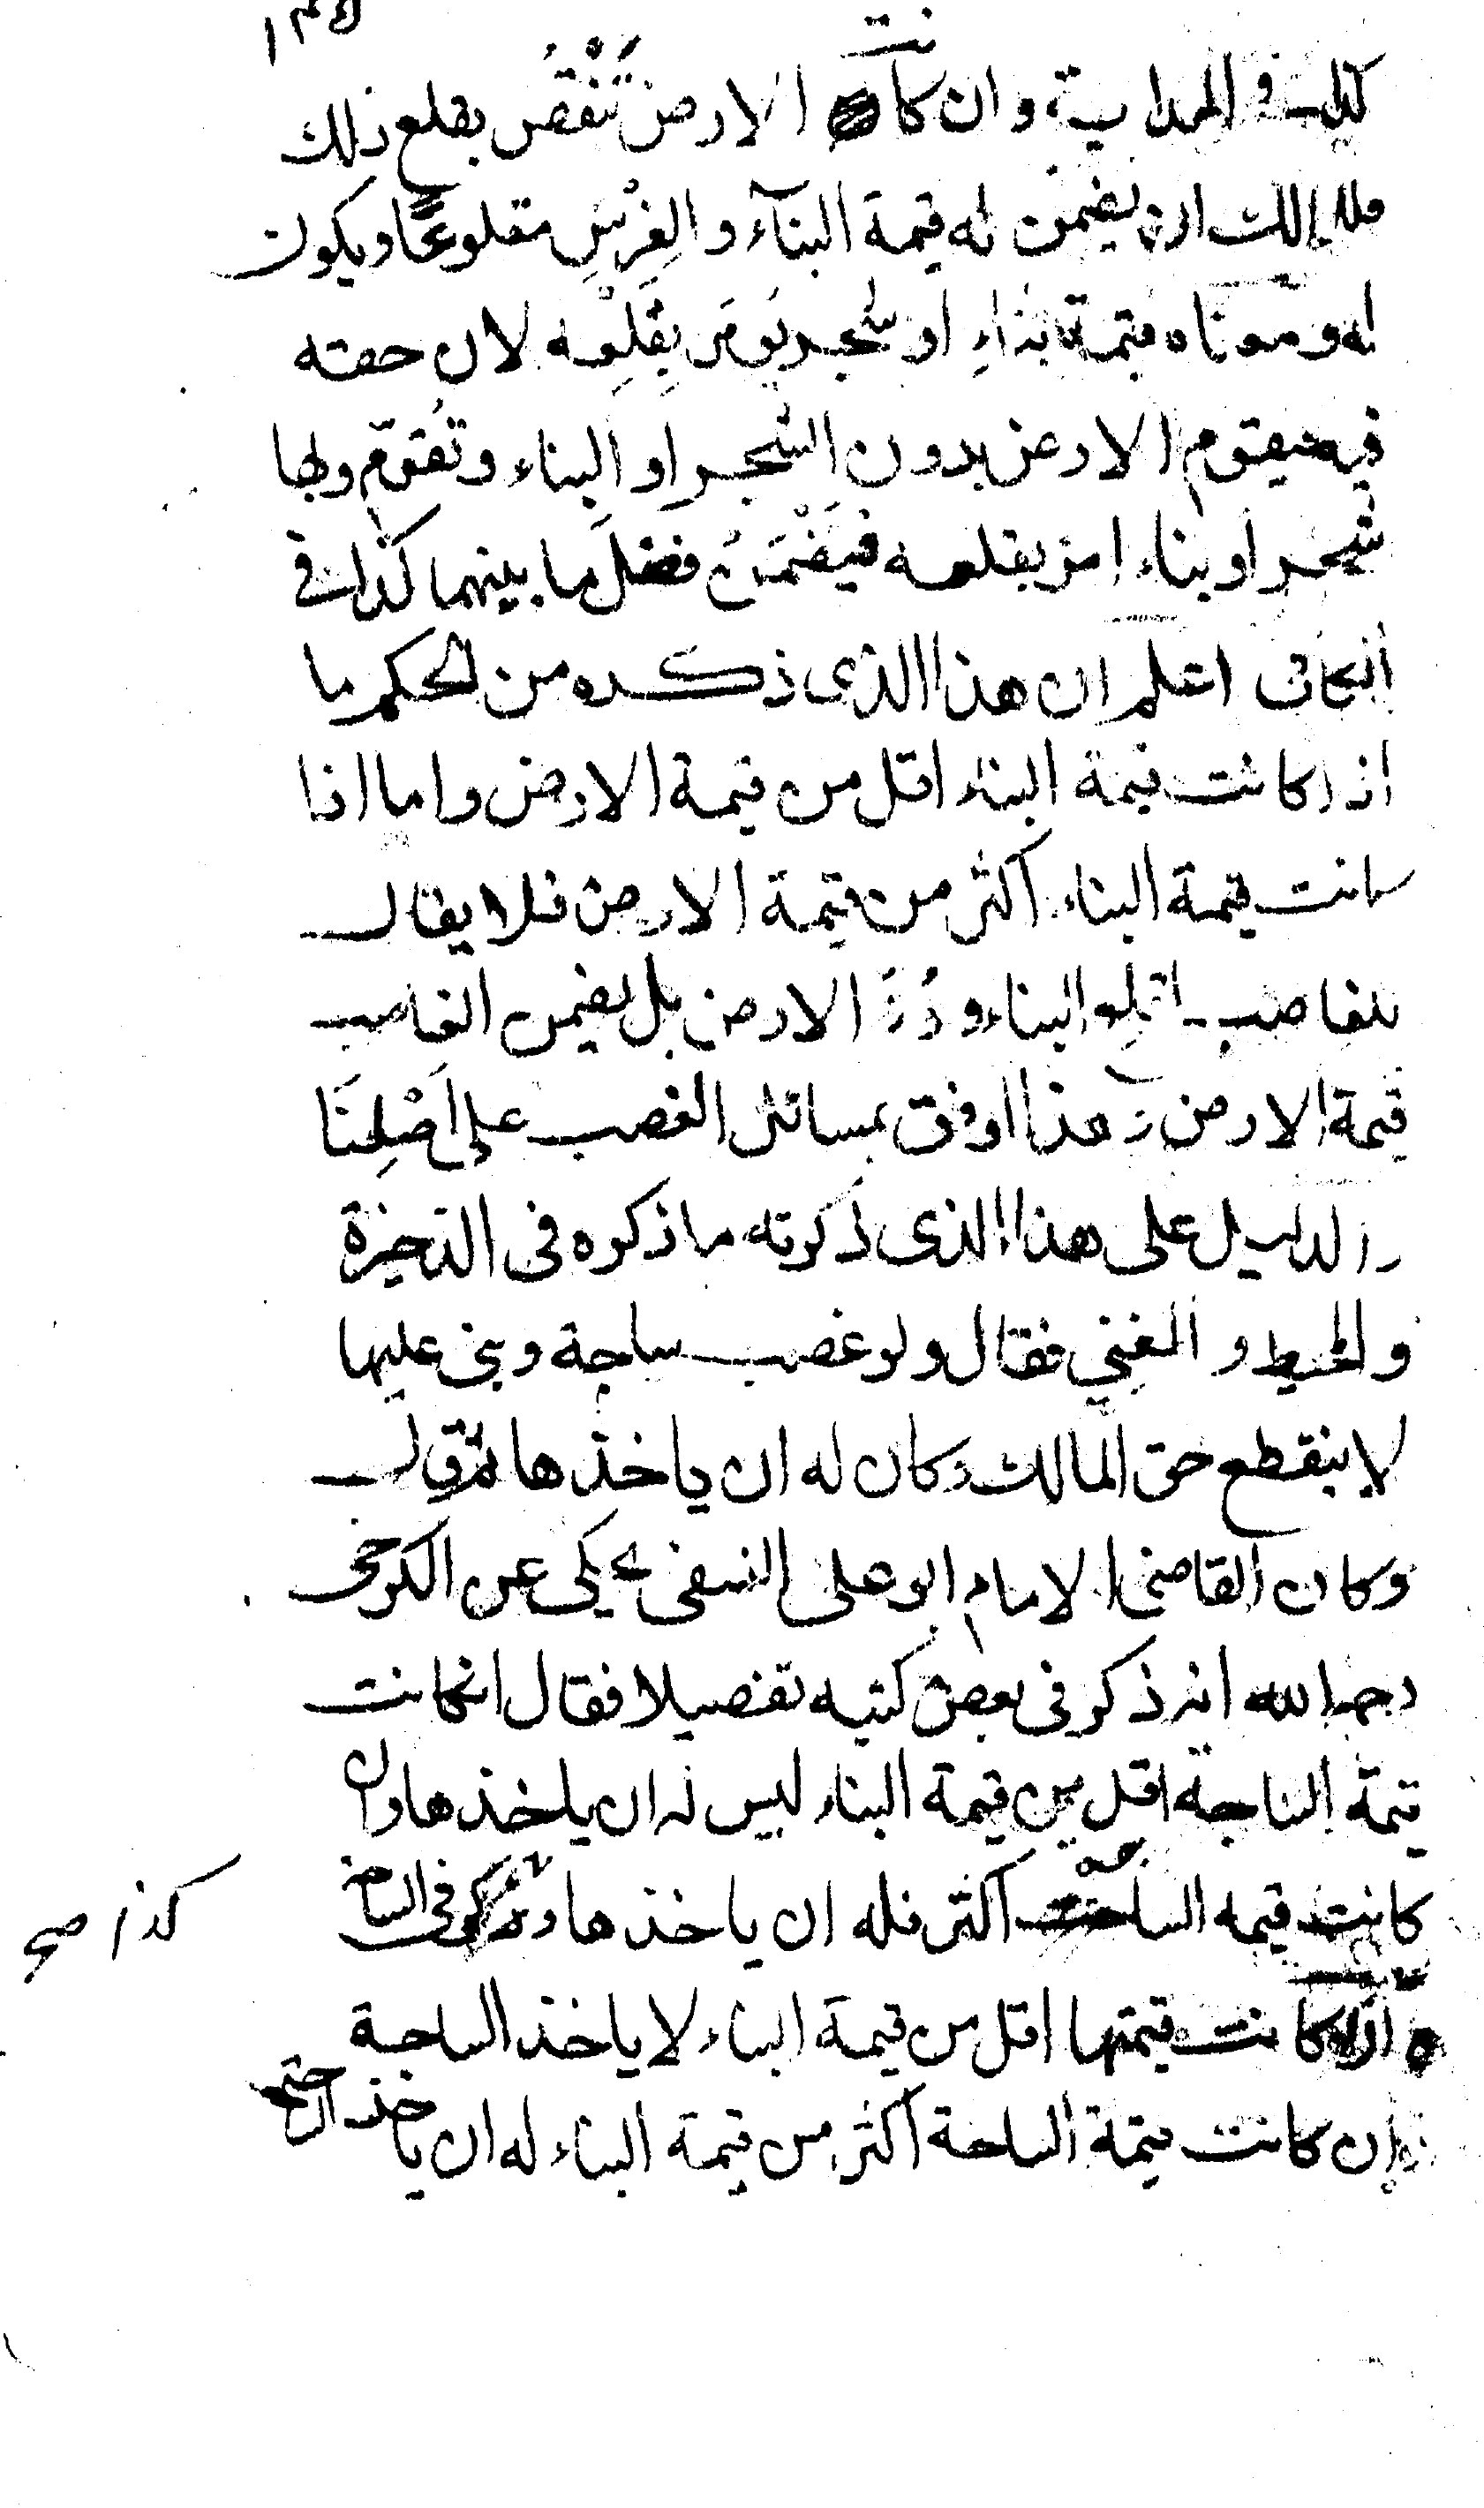 كذلك في الهداية وان كانت الارض تَنْقُصُ بقلع ذلك
فللمالك ان يضمن له قيمة البنآء والغرس مقلوعًا ويكون
له ومعناه قيمة بناءِ او شجر يومَر بقلعه لان حقه
فيه فيقوم الارض بدون الشجر او البناء وتُقوّم وبها
شجر او بناء امر بقلعه فيَضْمَنُ فضل ما بينهما كذا في
الكافى اعلم ان هذا الذى ذكره من الحكم ما
اذا كانت قيمة البناء اقل من قيمة الارض واما اذا
كانت قيمة البناء اكثر من قيمة الارض فلا يقال
للغاصب اقلع البناء ورُدَّ الارض بل يضمن الغاصب
قيمة الارض وهذا اوفق بمسائل الغصب على اَصْلِنَا
والدليل على هذا الذى ذكرته ما ذكره فى الذخيرة
والمحيط و المغني فقال ولو غصب ساجة وبنى عليها
لا ينقطع حق المالك وكان له ان ياخذها ثم قال
وكان القاضى الامام ابو على النسفى يحكى عن الكرخى
رحمه الله انه ذكر فى بعض كتبه تفصيلا فقال ان كانت
قيمة الساجة اقل من قيمة البناء ليس له ان ياخذها وان
كانت قيمه الساجة اكثر فله ان ياخذها وذكر فى
كذا صح
وان كانت قيمتها اقل من قيمة البناء لا ياخذ الساجة
وان كانت قيمة الساجة اكثر من قيمة البناء له ان ياخذ